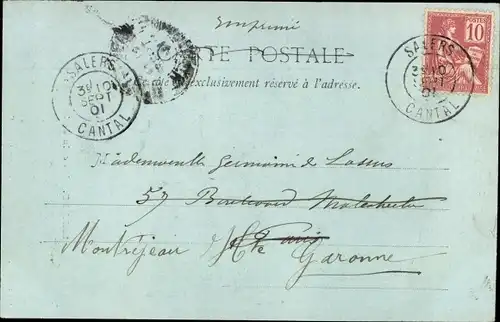 Imprimé
CARTE POSTALE
exclusivement réservé à l'adresse.
SALERS
3E 10
SEPT
01
CANTAL
POSTES
10
SALERS
3E 10
SEPT
01
CANTAL
Mademoiselle Germaine de Lassus
57 Boulevard Malesherbes
Paris
Montréjeau Hte Garonne